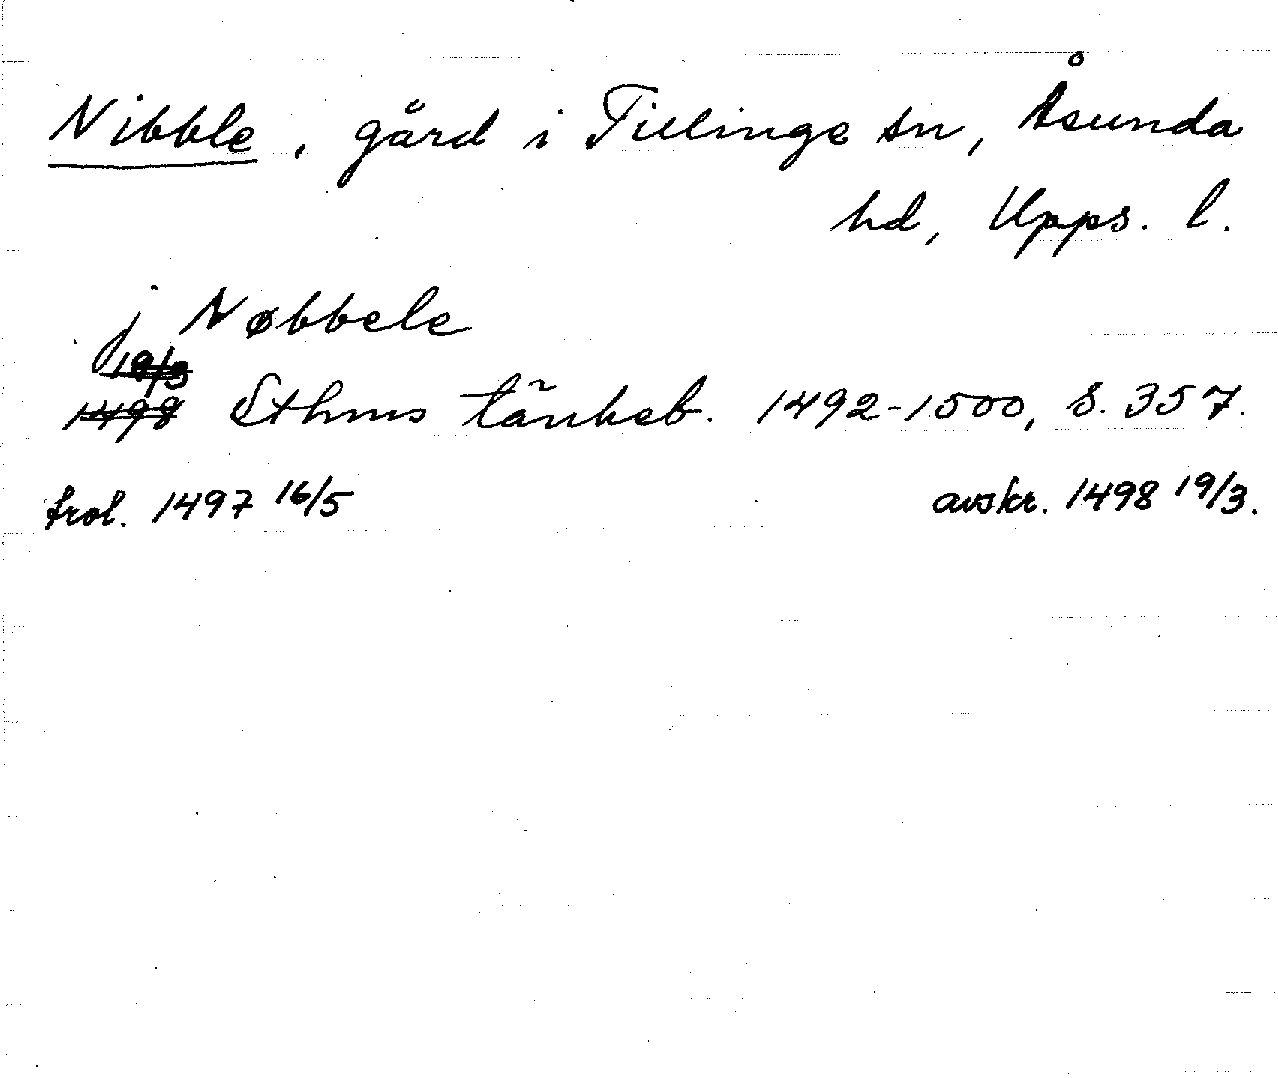 Nibble, gård i Tillinge sn, Åsunda
hd, Upps. l.
j Nøbbele
19/3
1498 Sthms tänkeb. 1492-1500, s. 357.
trol. 1497 16/5 avskr. 1498 19/3.